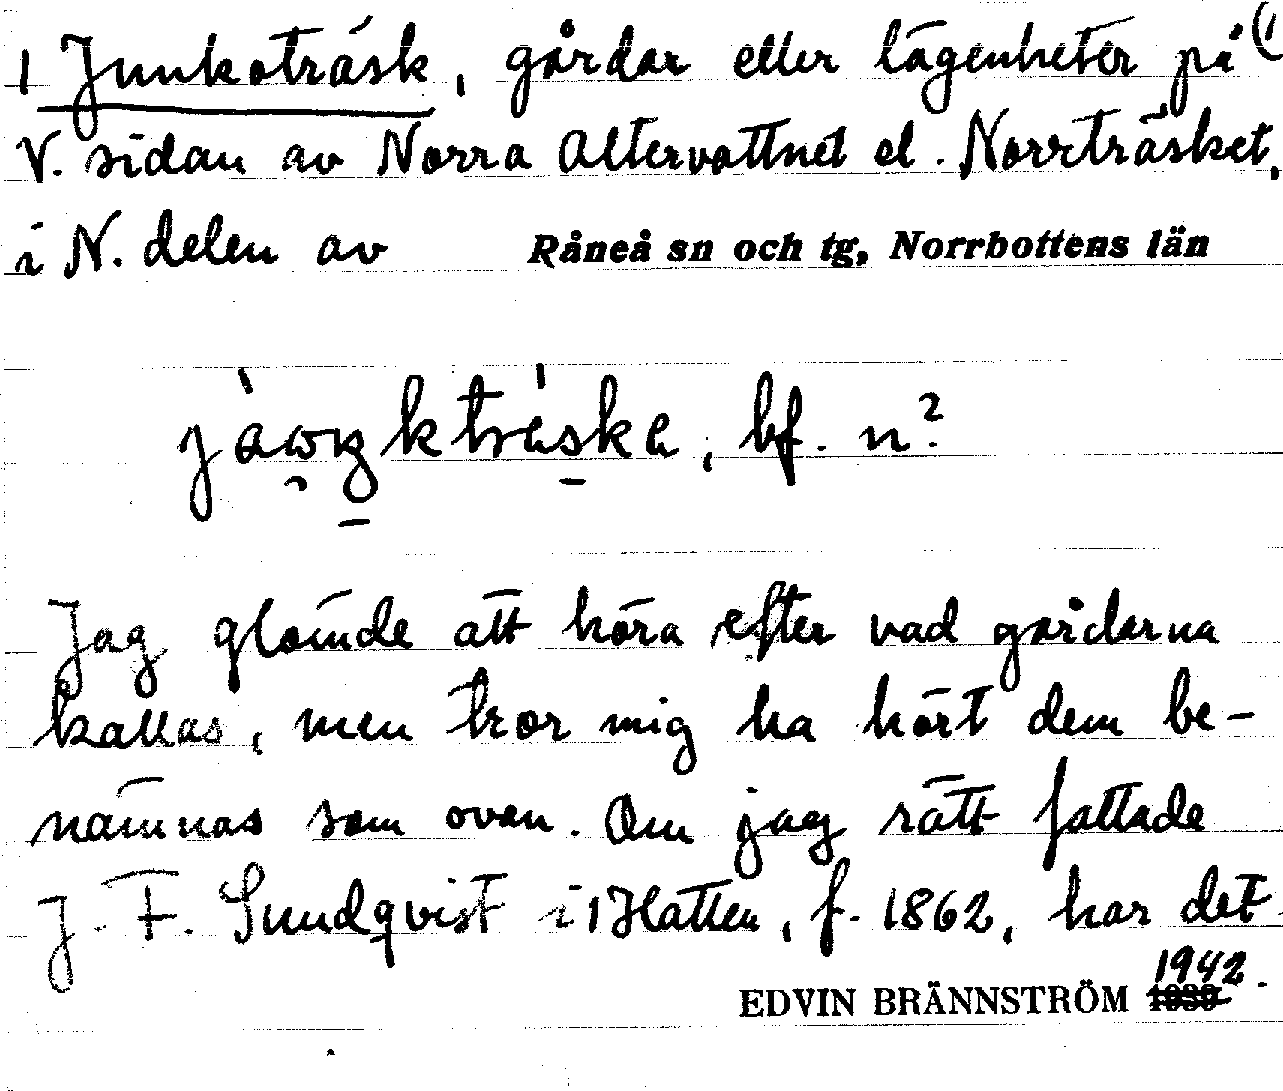 1 Junkoträsk, gårdar eller lägenheter på (1
V. sidan av Norra Altervattnet el. Norrträsket,
i N. delen av Råneå sn och tg, Norrbottens län
bf. n?
Jag glömde att höra efter vad gårdarna
kallas, men tror mig ha hört dem be-
nämnas som ovan. Om jag rätt fattade
J. F. Sundqvist i Hatten, f. 1862, har det
1942.
EDVIN BRÄNNSTRÖM 1939